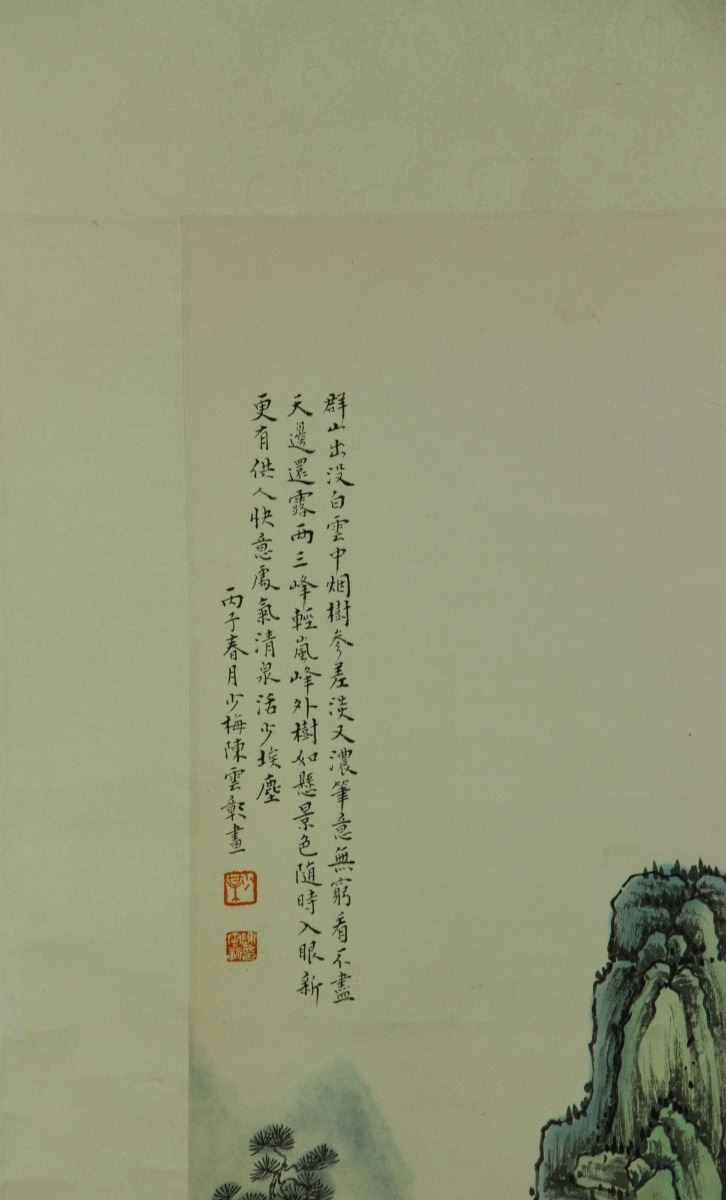 群山出没白雲中烟樹參差淡又濃筆意無窮看不盡
天邊還露兩三峰輕嵐峰外樹如懸景色随時入眼新
更有供人快意處氣清泉活少埃塵
丙子春月少梅陳雲彰畫